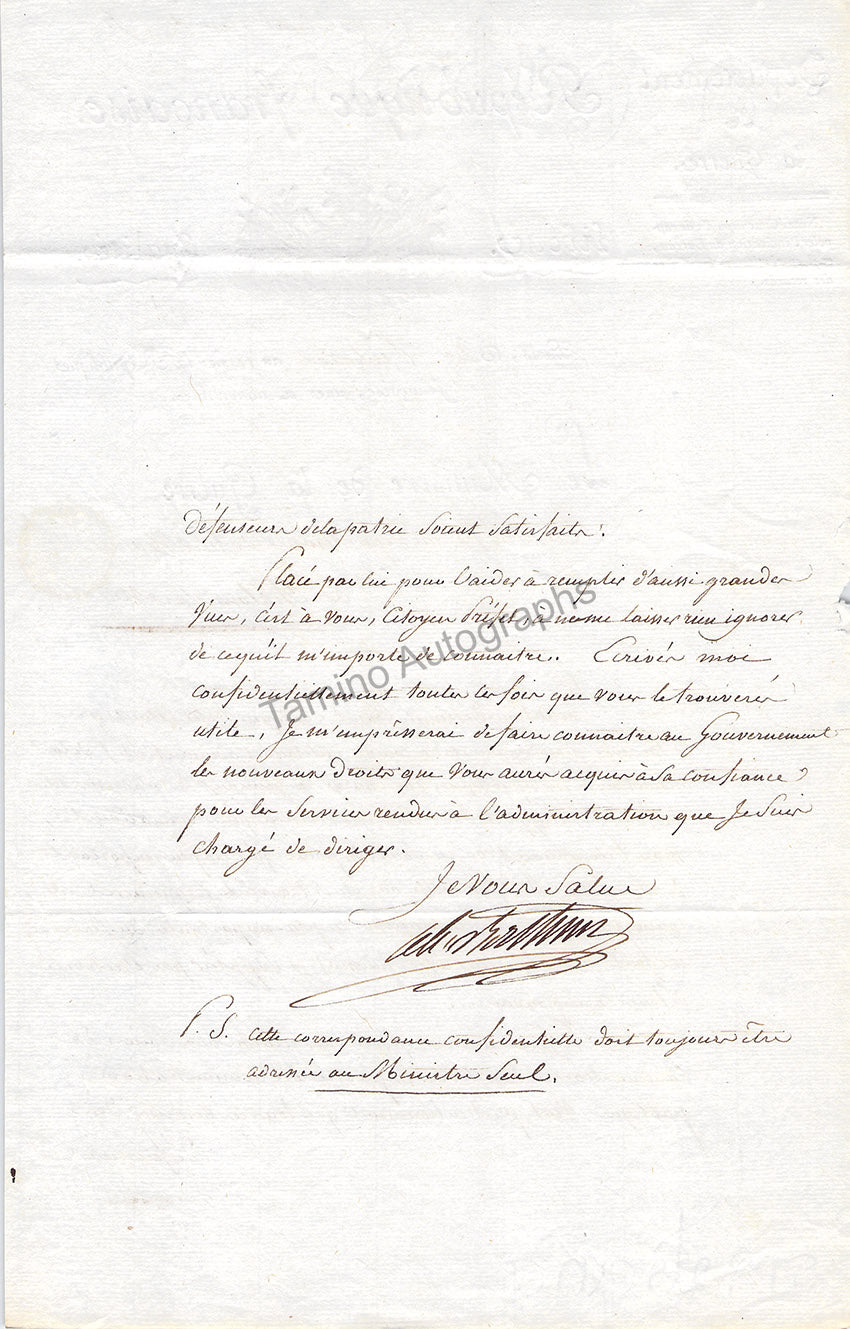 défenseurs de la patrie soient satisfaits.
Placé par lui pour l'aider à remplir d'aussi grandes
vues, c'est à vous, Citoyen Préfet, à ne me laisser rien ignorer
de ce qu'il m'importe de connaitre. Ecrivés moi
confidentiellement toutes les fois que vous le trouverés
utile, Je m'empresserai de faire connaitre au Gouvernement
les nouveaux droits que vous aurés acquis à sa confiance
pour les services rendus à l'administration que Je suis
chargé de diriger.
Je vous Salue
P. S. cette correspondance confidentielle doit toujours être
adressée au Ministre Seul.
Tamino Autographs